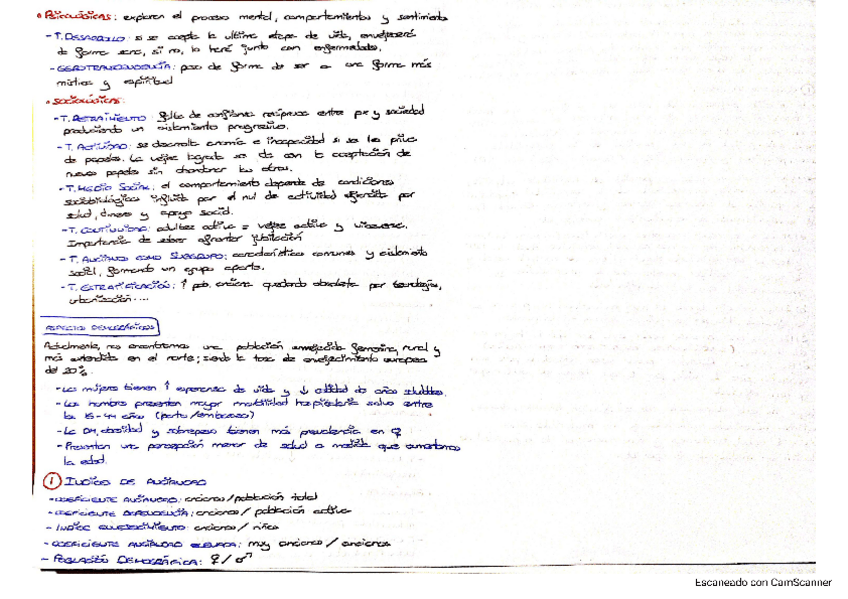 • PSICOLÓGICAS: exploran el proceso mental, comportamientos y sentimientos
- T. DESARROLLO: si se acepta la última etapa de vida, envejecerá
de forma sana, si no, lo hará junto con enfermedades.
- GEROTRANSCENDENCIA: paso de forma de ser a una forma más
mística y espiritual
• SOCIOLÓGICAS:
- T. RETRAIMIENTO: falta de confianza recíproca entre px y sociedad
produciendo un aislamiento progresivo.
- T. ACTIVIDAD: se desarrolla anomia e incapacidad si se les priva
de papeles. La vejez lograda se da con la aceptación de
nuevos papeles sin abandonar los otros.
- T. MEDIO SOCIAL: el comportamiento depende de condiciones
sociobiológicas influida por el nvl de actividad ejercida por
salud, dinero y apoyo social.
- T. CONTINUIDAD: adultez activa = vejez activa y viceversa.
Importancia de saber afrontar jubilación
- T. ANCIANOS COMO SUBGRUPO: características comunes y aislamiento
social, formando un grupo aparte.
- T. ESTRATIFICACIÓN: ↑ pob. anciana quedando obsoleta por tecnologías,
urbanización....
ASPECTOS DEMOGRÁFICOS
Actualmente, nos encontramos una población envejecida femenina, rural y
más extendida en el norte; siendo la tasa de envejecimiento europea
del 20%.
- Las mujeres tienen ↑ esperanza de vida y ↓ calidad de años
- Los hombres presentan mayor morbilidad hospitalaria salvo entre
los 15-44 años (parto/embarazo)
- La DM, obesidad y sobrepeso tienen más prevalencia en ♀
- Presentan una percepción menor de salud a medida que aumentamos
la edad.
① ÍNDICES DE ANCIANIDAD
- COEFICIENTE ANCIANIDAD: ancianos/población total
- COEFICIENTE DEPENDENCIA: ancianos/ población activa
- ÍNDICE ENVEJECIMIENTO: ancianos / niños
- COEFICIENTE ANCIANIDAD ELEVADA: muy ancianos / ancianos
- POBLACIÓN DEMOGRÁFICA: ♀ / ♂
Escaneado con CamScanner